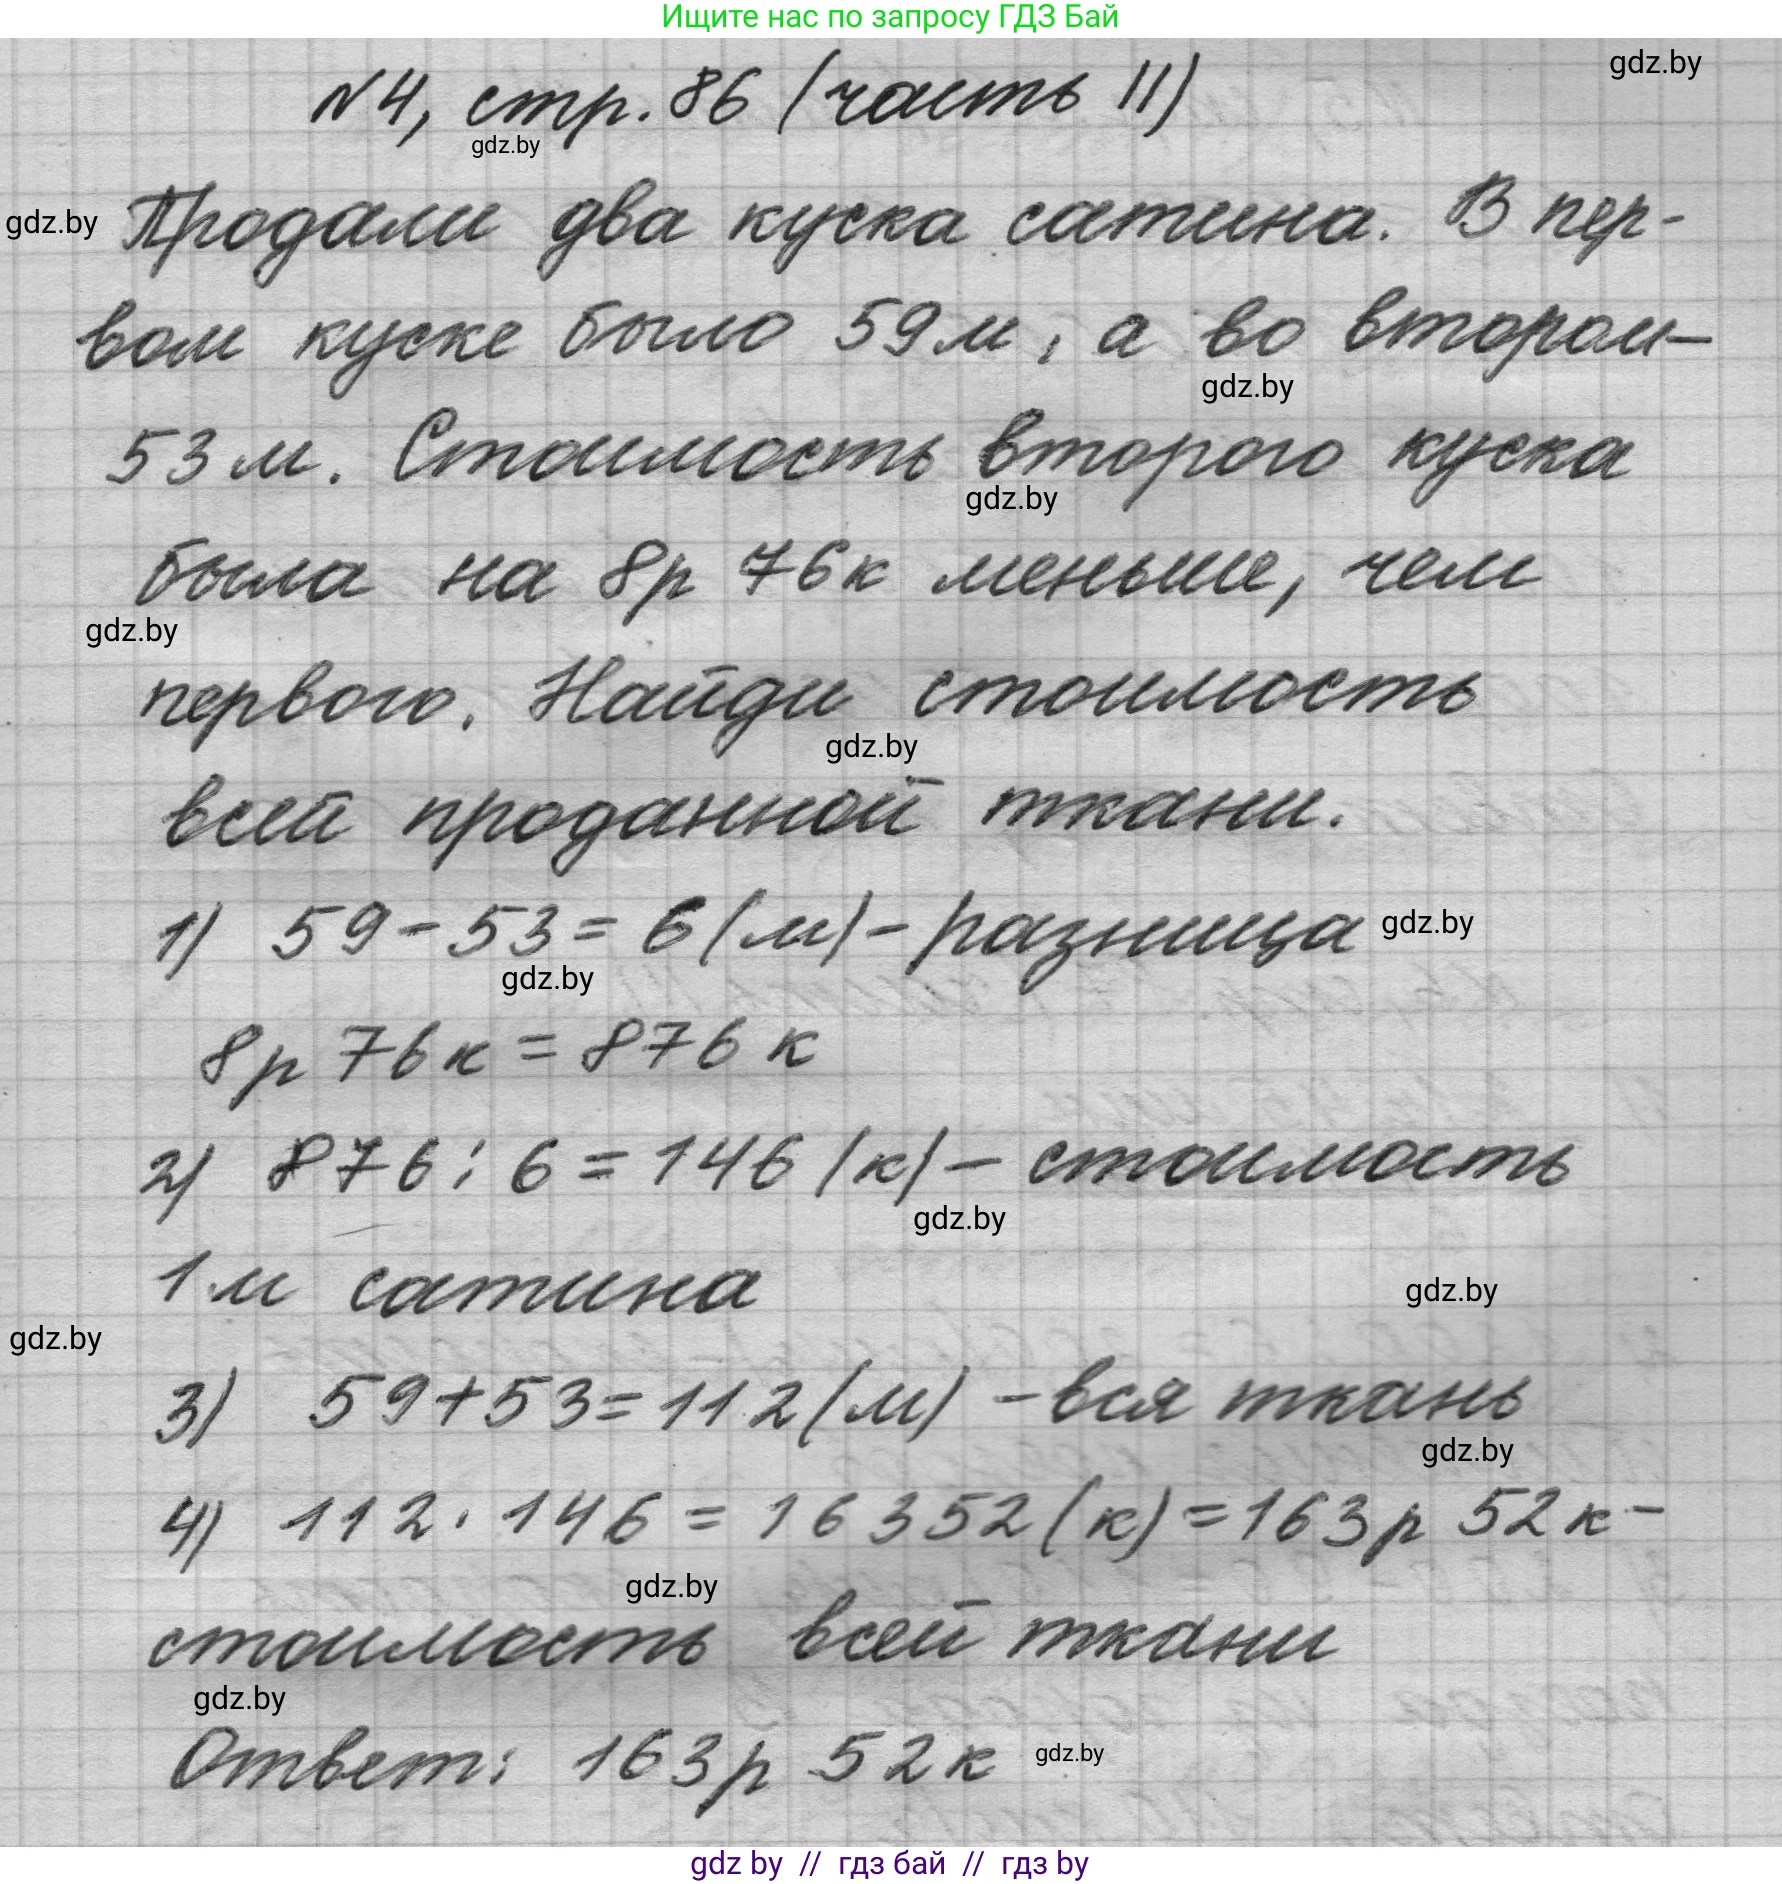 Ищите нас по запросу ГДЗ Бай
gdz.by
№4, стр. 86 (часть II)
gdz.by
gdz.by
Продали два куска сатина. В пер-
вом куске было 59 м, а во втором –
gdz.by
53 м. Стоимость второго куска
gdz.by
была на 8р 76к меньше, чем
gdz.by
первого. Найди стоимость
gdz.by
всей проданной ткани.
1) 59 - 53 = 6 (м) - разница
gdz.by
gdz.by
8р 76к = 876 к
2) 876 : 6 = 146 (к) – стоимость
gdz.by
1 м сатина
gdz.by
gdz.by
3) 59 + 53 = 112 (м) - вся ткань
gdz.by
4) 112 · 146 = 16352 (к) = 163р 52к -
gdz.by
стоимость всей ткани
gdz.by
Ответ: 163р 52к
gdz.by
gdz by // гдз бай // гдз by